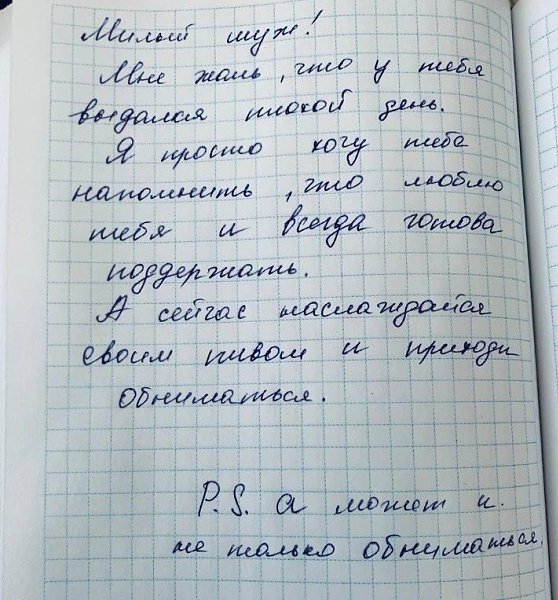 Милый муж!
Мне жаль, что у тебя
выдался плохой день.
Я просто хочу тебе
напомнить, что люблю
тебя и всегда готова
поддержать.
А сейчас наслаждайся
своим пивом и приходи
обниматься.
P.S. а может и
не только обниматься.